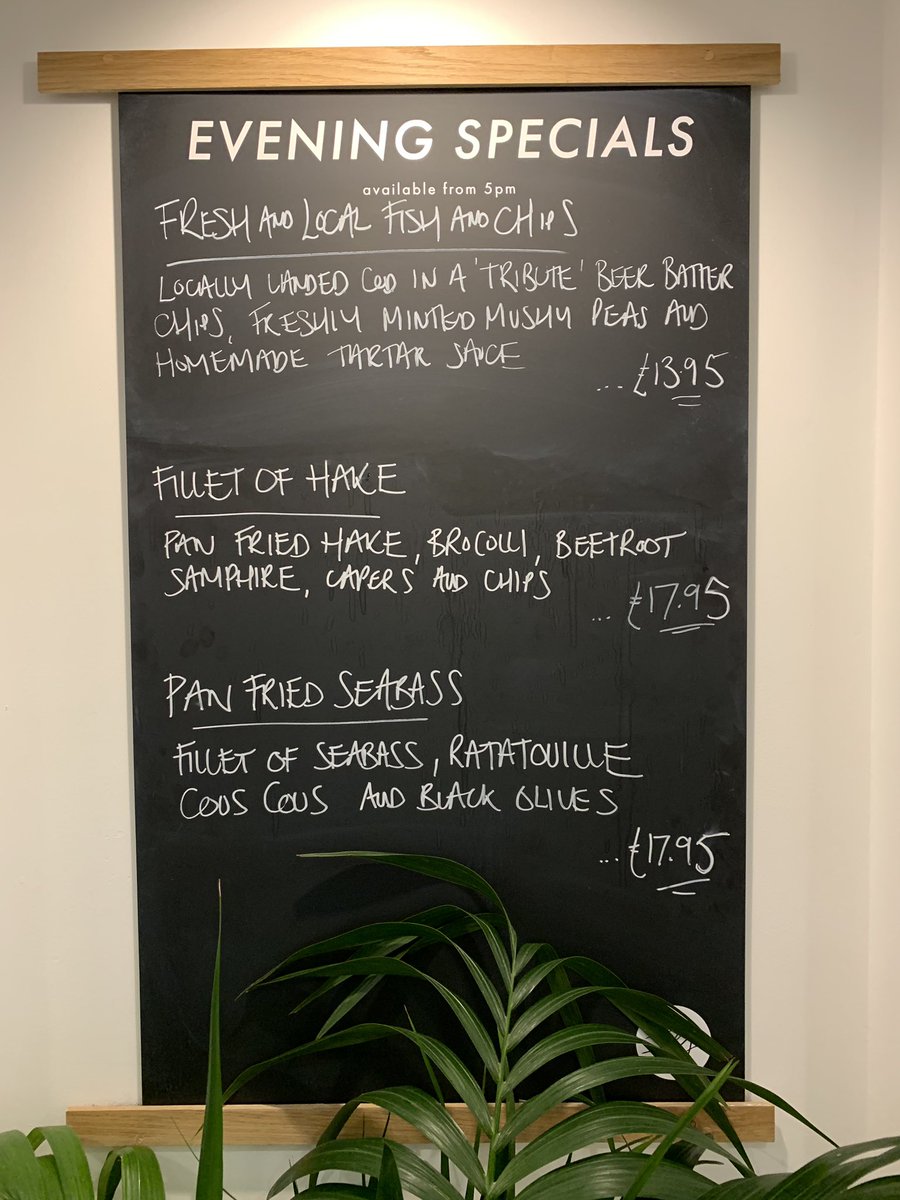 EVENING SPECIALS
available from 5pm
FRESH AND LOCAL FISH AND CHIPS
LOCALLY LANDED COD IN A 'TRIBUTE' BEER BATTER
CHIPS, FRESHLY MINTED MUSHY PEAS AND
HOMEMADE TARTAR SAUCE
... £13.95
FILLET OF HAKE
PAN FRIED HAKE, BROCOLLI, BEETROOT
SAMPHIRE, CAPERS AND CHIPS
... £17.95
PAN FRIED SEABASS
FILLET OF SEABASS, RATATOUILLE
COUS COUS AND BLACK OLIVES
... £17.95